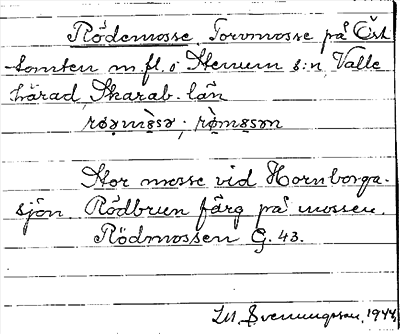 Rödemosse. Torvmosse på Öst
tomten m.fl. i Stenum s:n, Valle
härad Skarab. län
Stor mosse vid Hornborga-
sjön. Rödbrun färg på mossen.
Rödmossen G. 43.
Svenungsson, 1944.